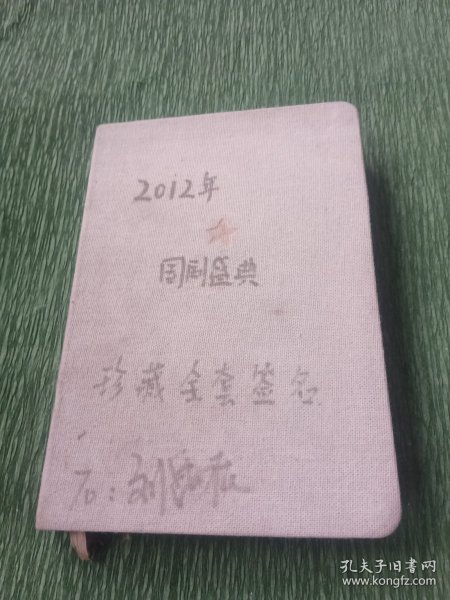 2012年
国剧盛典
珍藏全套签名
TO:刘
孔夫子旧书网
www.kongfz.com